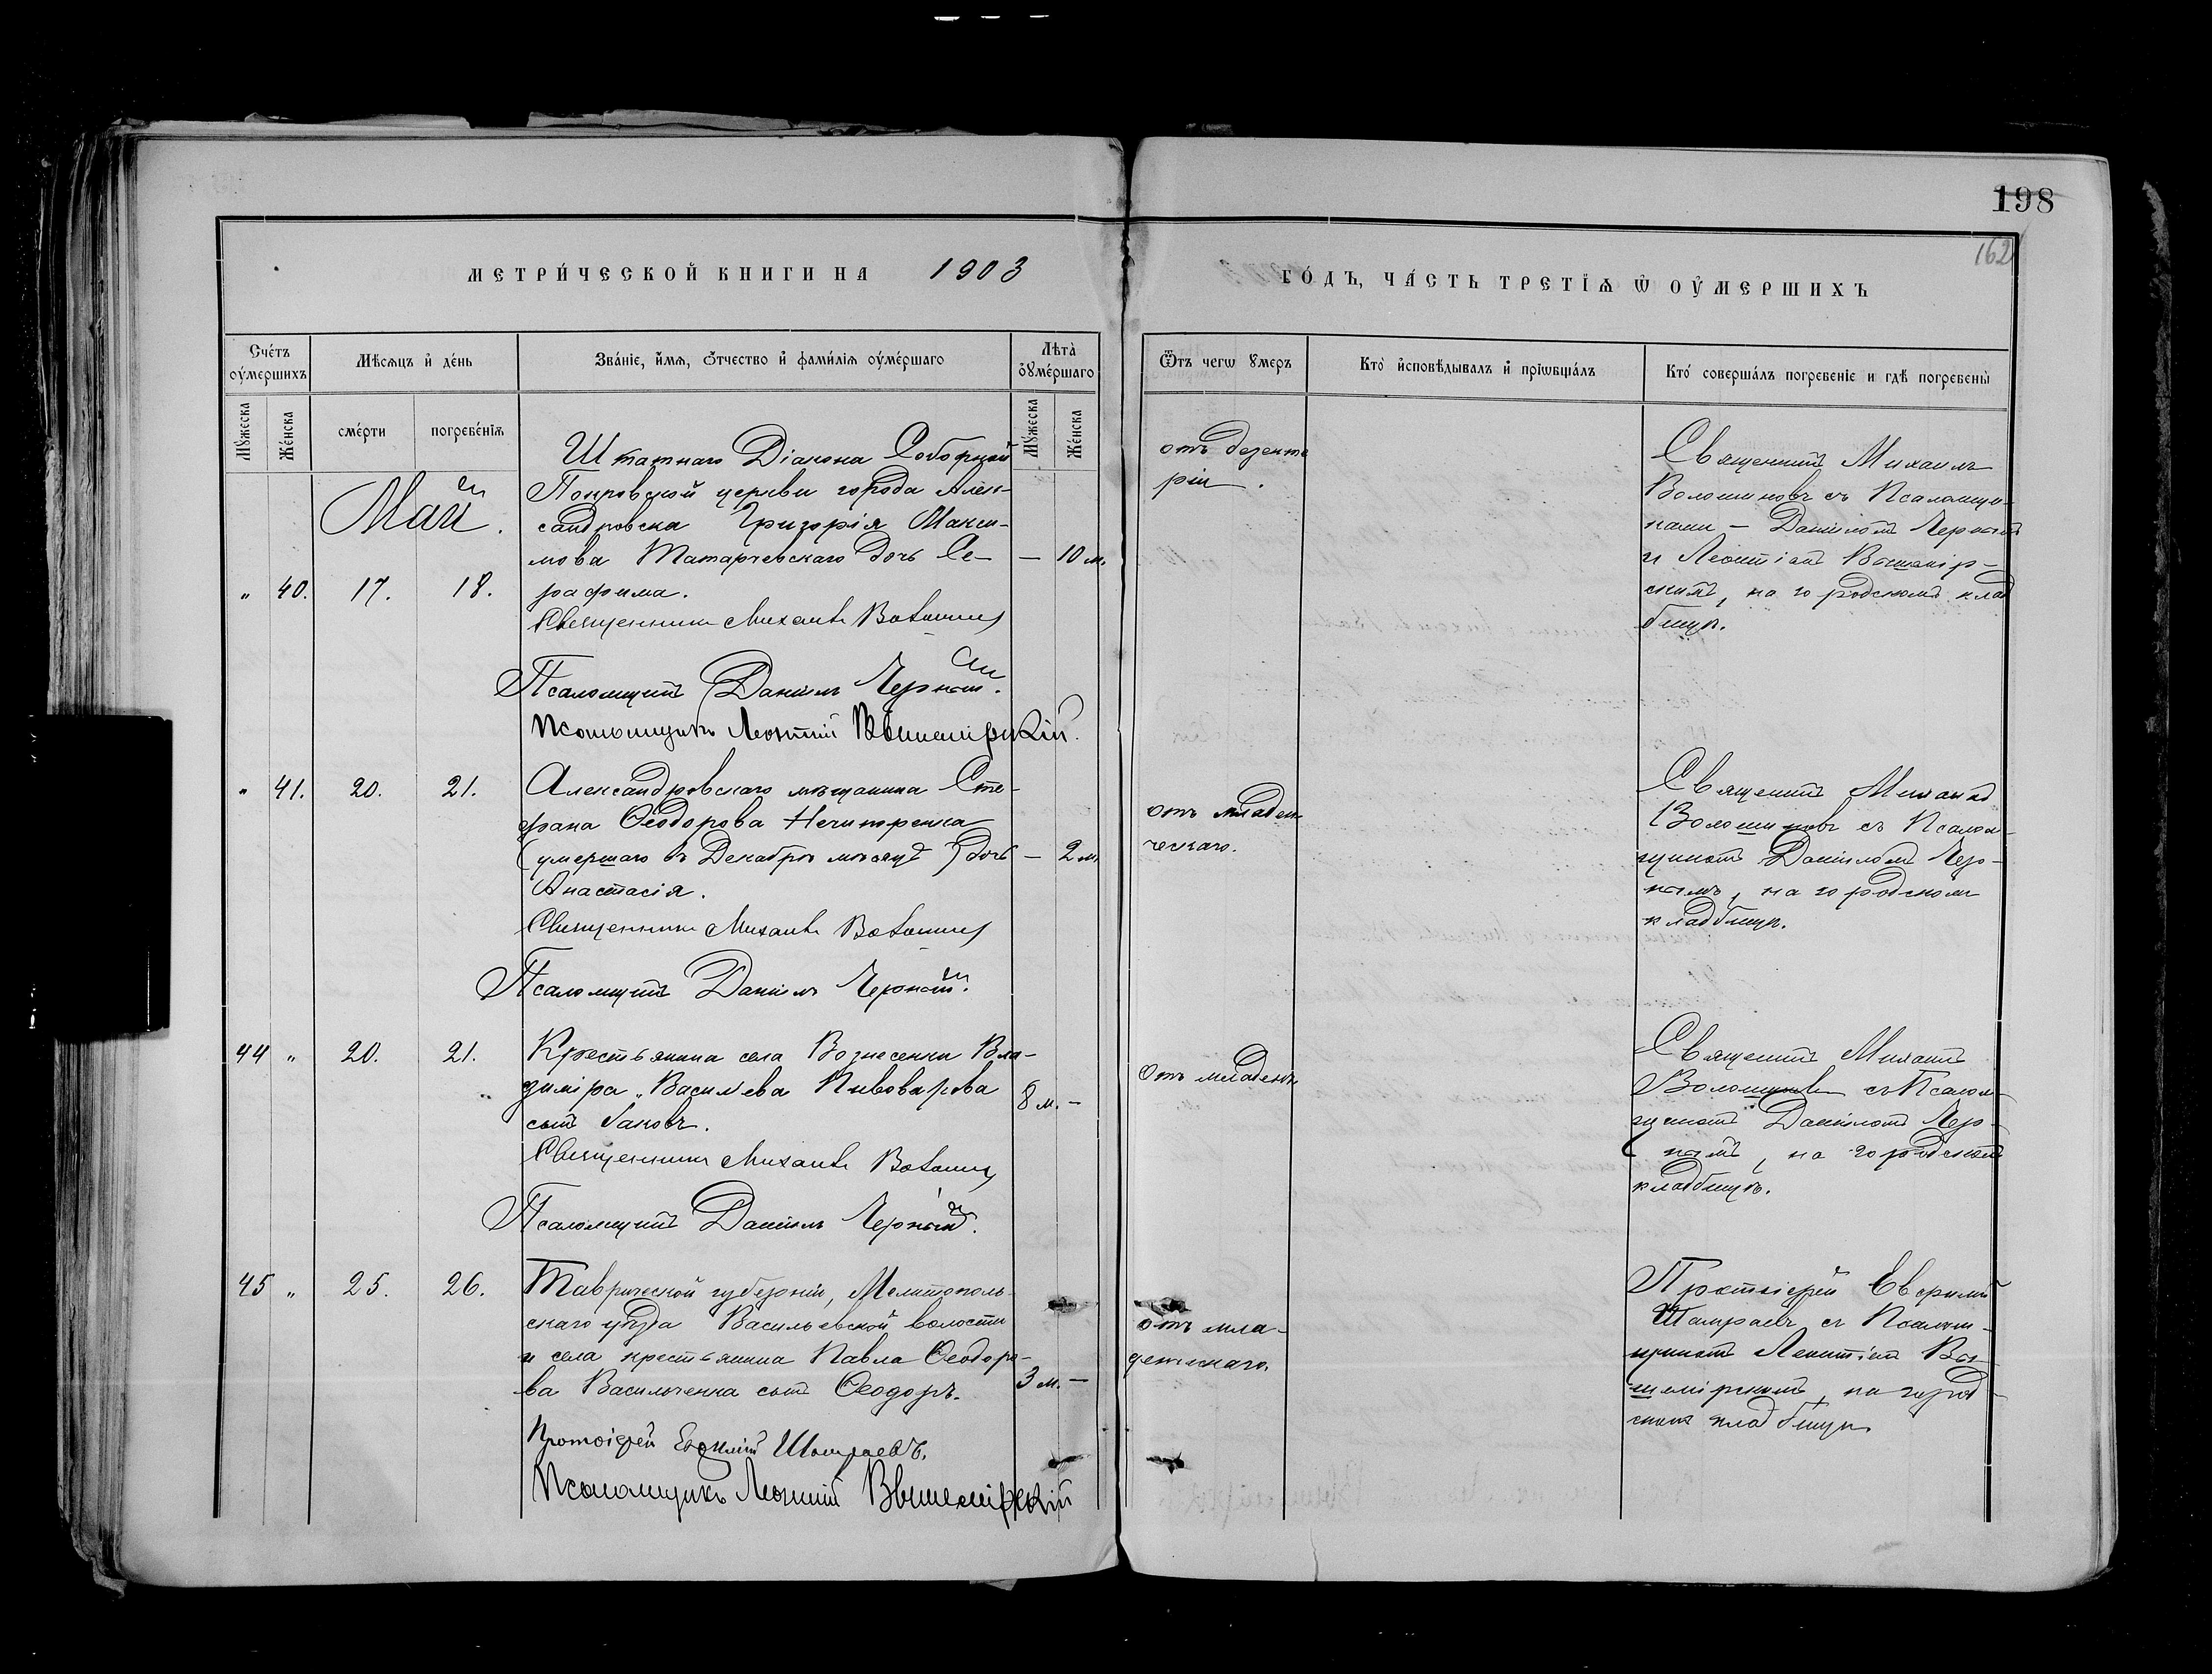 198
162
МЕТРИ́ЧЕСКОЙ КНИГИ НА 1903
ГО́ДЪ, ЧА́СТЬ ТРЕТІѦ Ѡ ОУ҆МЕРШИХЪ
Сче́тъ оу҆мершихъ
Мѣсѧцъ и҆ де́нь
Зва́ніе, и҆́мѧ, ѻ҆́тчество и҆ фами́лїѧ оу҆ме́ршаго
Лѣта̀ оу҆ме́ршаго
Ѿ чегѡ ᲂумеръ
Кто̀ и҆сповѣ́дывалъ и҆ прїѡбща́лъ
Кто́ соверша́лъ погребе́ніе и гдѣ̀ погребены̀
Мꙋжеска
Же́нска
сме́рти
погребе́нїѧ
Мꙋжеска
Же́нска
Май.
Штатнаго Діакона Соборной
Покровской церкви города Алек-
сандровска Григорія Макси-
мова Татарчевскаго дочь Се- — 10 м.
„ 40. 17. 18. рафима.
Священникъ Михаилъ Волошинъ
Псаломщикъ Даніилъ Черный.
Псаломщикъ Леонтій Вышемірскій.
отъ дезенте
ріи.
Священникъ Михаилъ
Волошиновъ съ Псаломщи-
ками — Даніиломъ Чернымъ
и Леонтіемъ Вышемір-
скимъ, на городскомъ клад
бищѣ.
„ 41. 20. 21. Александровскаго мѣщанина Сте-
фана Ѳеодорова Нечипоренка
(умершаго въ Декабрѣ мѣсяцѣ) дочь — 2 м.
Анастасія.
Священникъ Михаилъ Волошинъ
Псаломщикъ Даніилъ Черный.
отъ младен-
ческаго.
Священникъ Михаилъ
Волошиновъ съ Псалом-
щикомъ Даніиломъ Чер-
нымъ, на городскомъ
кладбищѣ.
44 „ 20. 21. Крестьянина села Вознесенки Вла-
диміра Васильева Пивоварова 8 м. —
сынъ Іаковъ.
Священникъ Михаилъ Волошинъ
Псаломщикъ Даніилъ Черный.
Отъ младенч.
Священникъ Михаилъ
Волошиновъ съ Псалом-
щикомъ Даніиломъ Чер-
нымъ, на городскомъ
кладбищѣ.
45 „ 25. 26. Таврической губерніи, Мелитополь-
скаго уѣзда Васильевской волости
и села крестьянина Павла Ѳеодоро-
ва Васильченка сынъ Ѳеодоръ. 3 м. —
Протоіерей Евфимій Шамраевъ.
Псаломщикъ Леонтій Вышемірскій
отъ мла-
денческаго.
Протоіерей Евфимій
Шамраевъ съ Псалом-
щикомъ Леонтіемъ Вы-
шемірскимъ, на город-
скомъ кладбищѣ